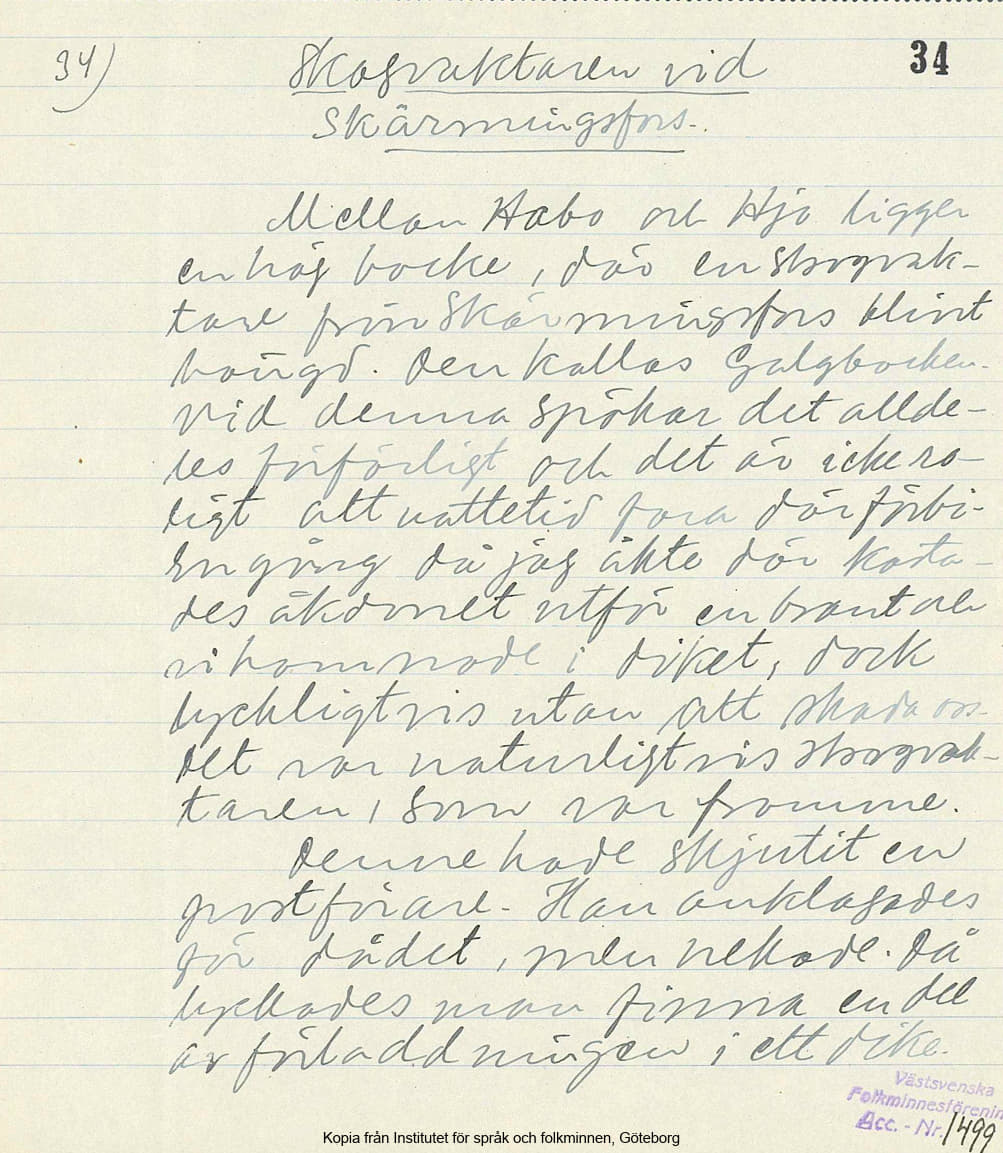 34) Skogvaktaren vid 34
Skärmingsfors.
Mellan Habo och Hjo ligger
en hög backe, där en skogvak-
tare från Skärmingsfors blivit
hängd. Den kallas Galgbacken.
Vid denna spökar det allde-
les förfärligt och det är icke ro-
ligt att nattetid fara där förbi.
En gång då jag åkte där kasta-
des åkdonet utför en brant och
vi hamnade i diket, dock
lyckligtvis utan att skada oss.
Det var naturligtvis skogvak-
taren, som var framme.
Denne hade skjutit en
postförare. Han anklagades
för dådet, men nekade. Då
lyckades man finna en del
av förladdningen i ett dike.
Västsvenska
Folkminnesförenin
Acc. - Nr. 1499
Kopia från Institutet för språk och folkminnen, Göteborg